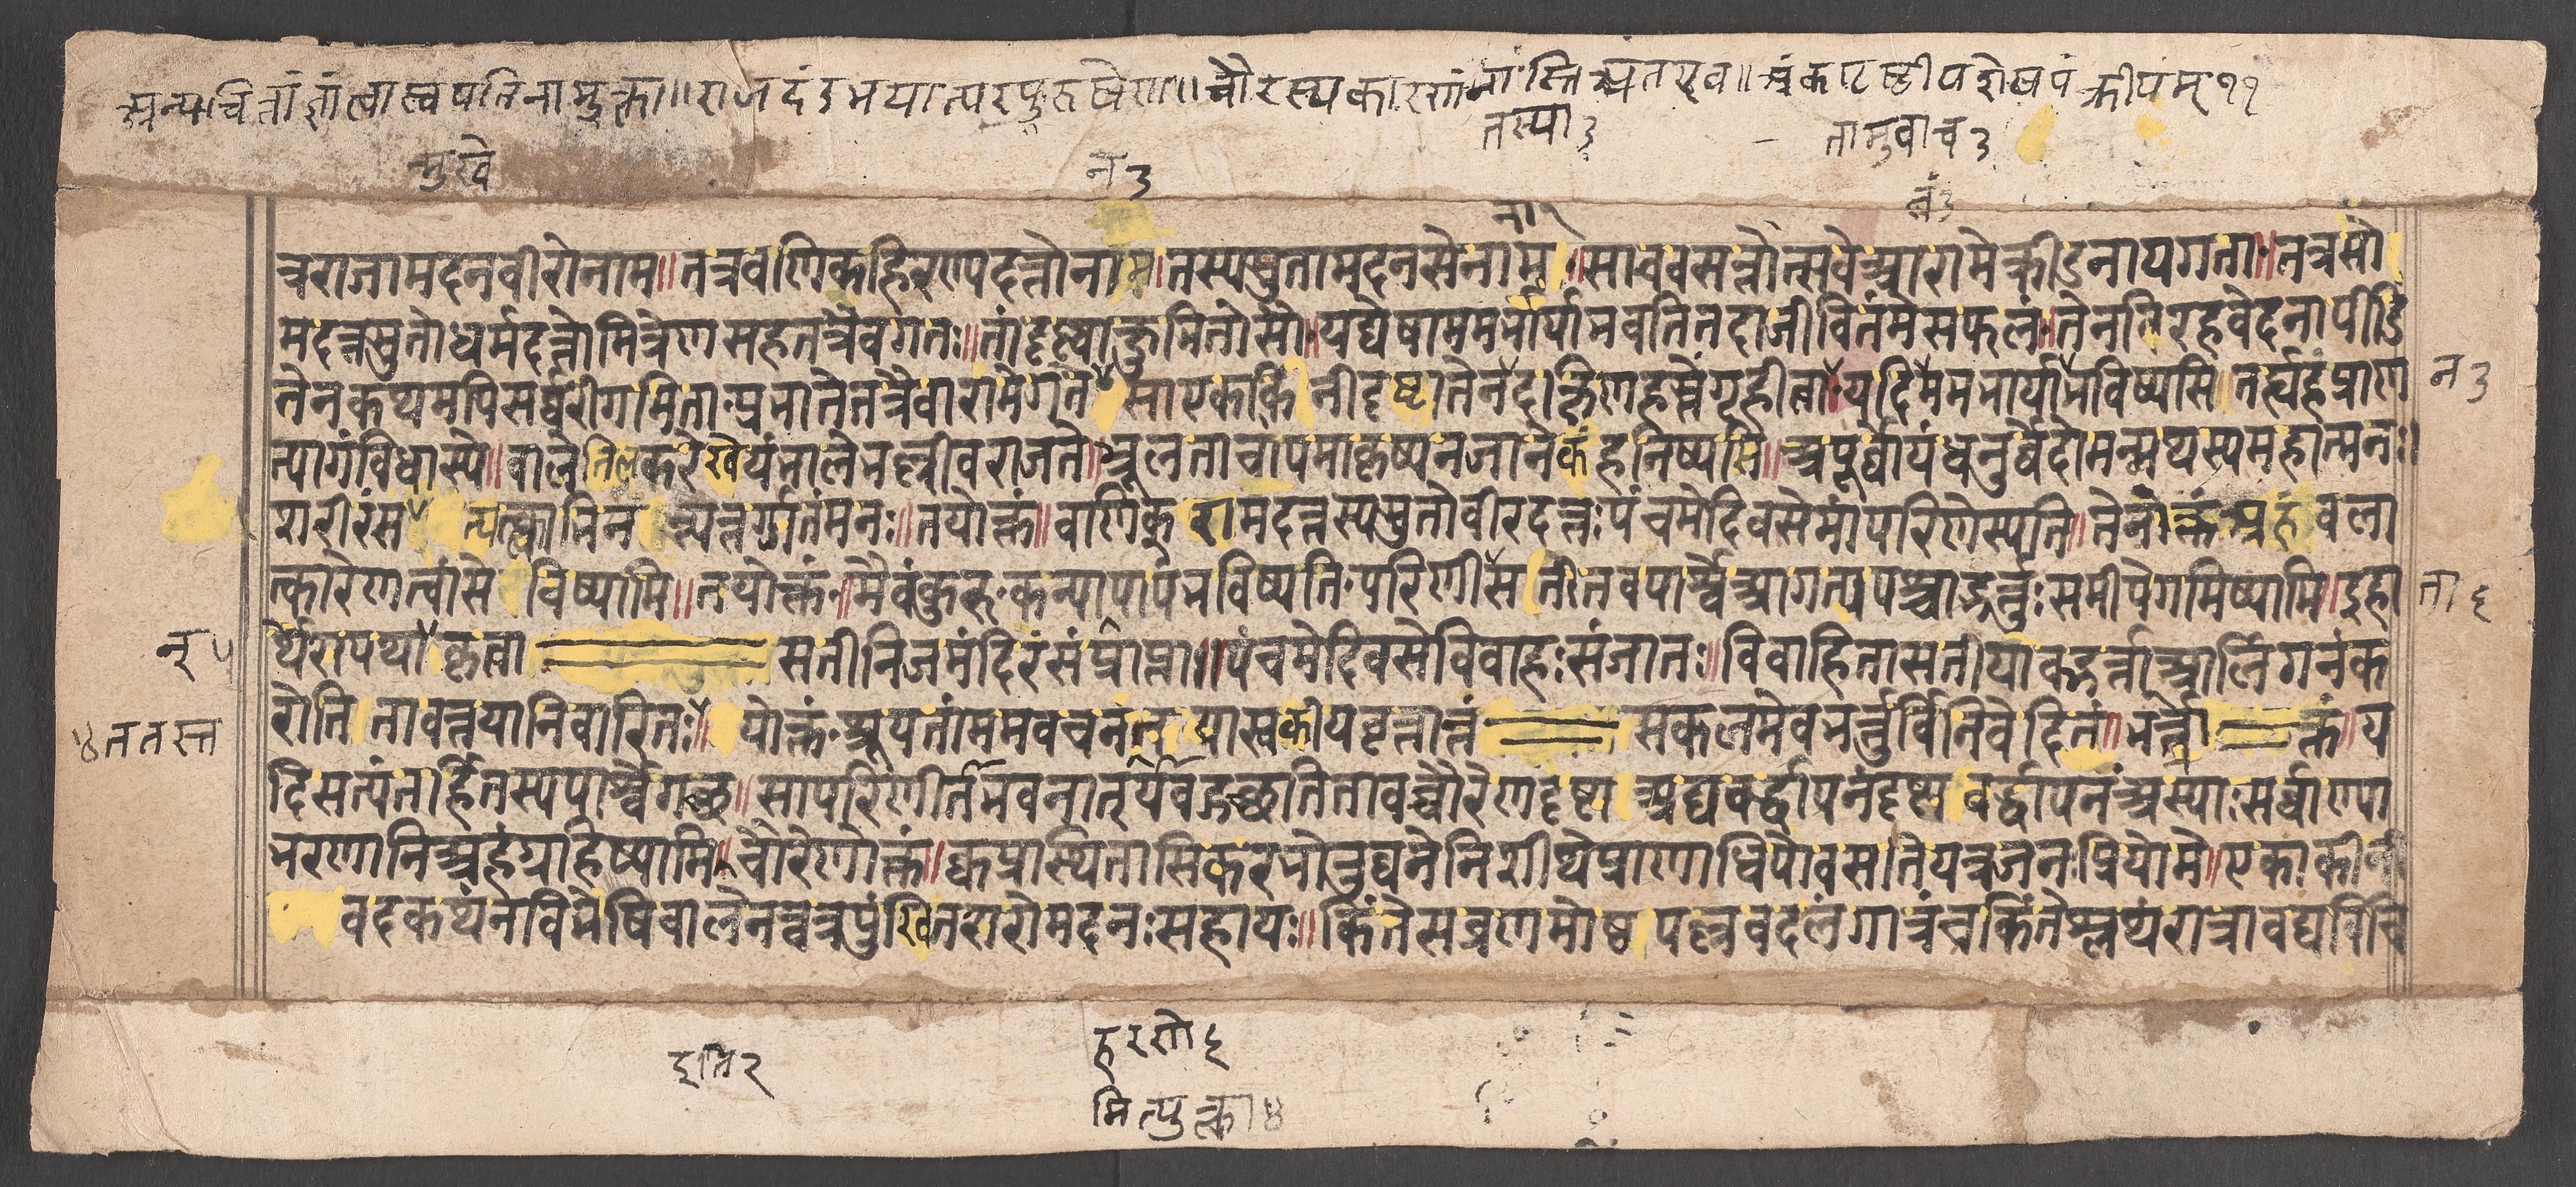 अन्यचित्तां ज्ञात्वा स्वपतिना मुक्ता ॥ राजदंडभयात्परपुरुषेण ॥ चौरस्य कारणं नास्ति अत एव ॥
तस्या३
तामुवाच ३
मुखे
न ३
ना २
त्रराजामदनवीरोनाम॥तत्रवणिकहिरण्यदत्तोनाम।तस्यसुतामदनसेनाम॥साववसन्तोत्सवेआरामेक्रीडनायगता॥तत्रमो
मदत्तसुतोधर्मदत्तोमित्रेणसहतत्रैवगतः॥तांदृष्ट्वाक्षुभितोसौ॥यद्येषाममभार्याभवतितदाजीवितंमेसफलं॥तेनविरहवेदनापीडि
तेनकथमपिसर्वरीगमिताप्रभातेतत्रैवारामेगत सा एकाकिनीदृष्टातेनदक्षिणहस्तेगृहीता॥यदिममभार्याभविष्यसि तर्ह्यहंप्राण
न ३
त्यागंविधास्ये॥बालेतिलकरेखेयंभालेभल्लीवराजते॥भ्रूलताचापमाकृष्यनजानेकंहनिष्यसि॥अपूर्वोयंधनुर्वेदोमन्मथस्यमहात्मनः॥
शरीरंस त्यत्स्वामिन न्त्यन्तर्गतंमनः॥तयोक्तं॥वणिक् रामदत्तस्यसुतोवीरदत्तः पंचमेदिवसेमांपरिणेस्यति॥तेनोक्तंअहंवला
त्कारेणत्वांसे विष्यामि॥तयोक्तं॥मैवंकुरु कन्यापापंभविष्यति परिणीसती तवपार्श्वेआगत्यपश्चाद्भर्तुःसमीपेगमिष्यामि॥इहा
ता ६
न् ५
र्थेशपथा कृत्वा सतीनिजमंदिरंसंप्राप्ता॥पंचमेदिवसेविवाहःसंजातः॥विवाहितासतीयावद्भर्त्ताआलिंगनंक
रोति तावत्तयानिवारितः॥ योक्तं श्रूयतांममवचनंत यास्वकीयवृत्तान्तं सकलमेवभर्त्तुर्विनिवेदितं॥भर्त्रा क्तं॥य
४ततस्त
दिसत्यंतर्हितस्यपार्श्वेगच्छ॥सापरिणीर्तभवनात् यावद्गच्छतितावच्चौरेणदृष्टा अद्यवर्द्धापनंदृष्ट वर्द्धापनंअस्याःसर्वाण्या
भरणानिअहंग्राहिष्यामि॥चौरेणोक्तं॥क्वप्रास्थितासिकरभोरुघनेनिशीथेप्राणाधिपोवसतियत्रजनःप्रियोमे॥एकाकीनी
वदकथंनविभेषिबालेनन्वत्रपुंखितशरोमदनःसहायः॥किंतेसव्रणमोष्ठ पल्लवदलंगात्रंचकिंतेश्लथंरात्रावद्यविचि
हरतो६
इति२
मित्युक्ता४